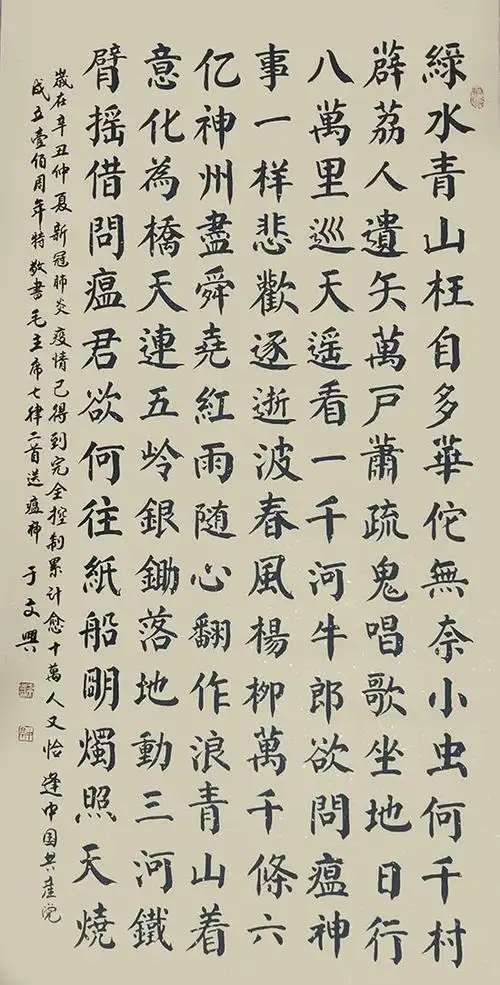 綠水青山枉自多華佗無奈小虫何千村
薜荔人遺矢萬戶蕭疏鬼唱歌坐地日行
八萬里巡天遥看一千河牛郎欲問瘟神
事一样悲歡逐逝波春風楊柳萬千條六
亿神州盡舜堯紅雨随心翻作浪青山着
意化為橋天連五岭銀鋤落地動三河鐵
臂摇借問瘟君欲何往紙船明燭照天燒
歲在辛丑仲夏新冠肺炎疫情已得到完全控制累计愈十萬人又恰逢中国共產党
成立壹佰周年特敬書毛主席七律二首送瘟神 于文興